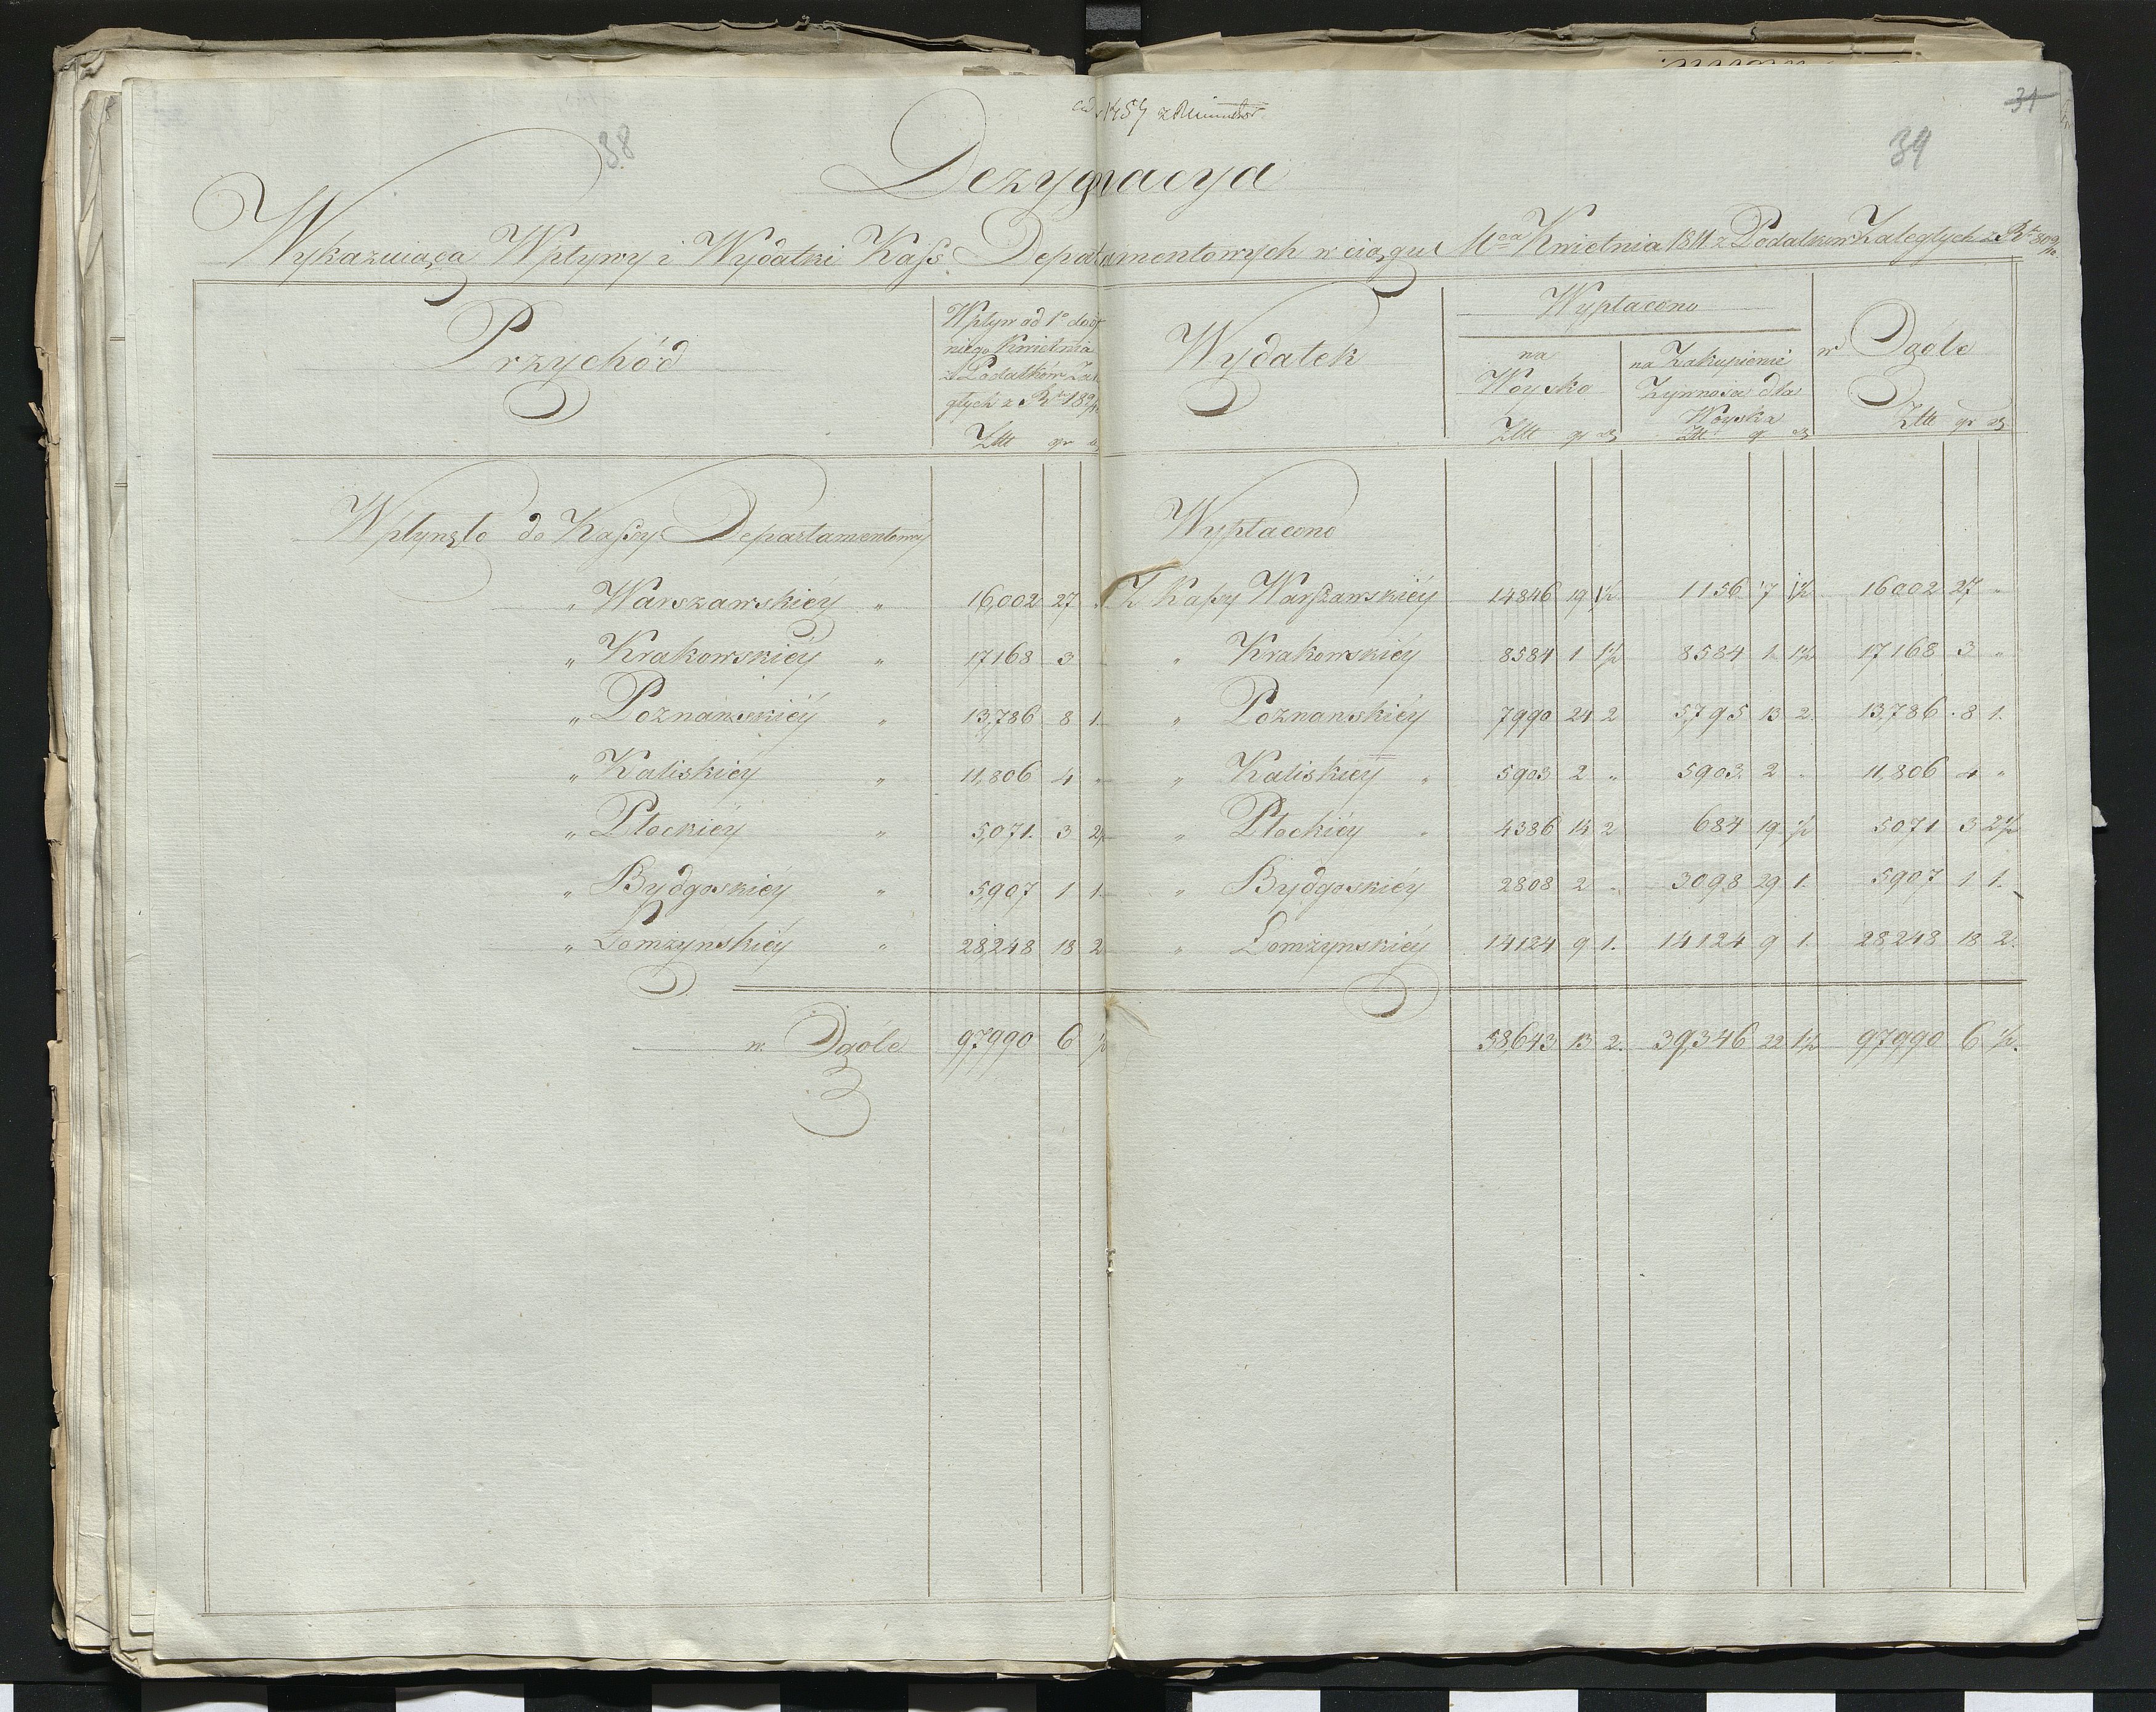 ad 1757 z
Dezygnacya
38
34
31
Wykazuiąca Wpływy i Wydatki Kass Departamentowych w ciągu Mca Kwietnia 1811 z Podatkow Zaległych z Rku 809/10
Przychód
Wpływ od 1o do
niego Kwietnia
z Podatków Zal
głych z Rku 1809/10
Złłt gr
Wydatek
Wypłacono
na
Woysko
Złłt gr
na Zakupienie
Zywnosci dla
Woyska
Złłt g
w Ogóle
Złłt gr
Wpłynęło do Kassy Departamentowy
Wypłacono
" Warszawskiéy " 16,002 27 " Z Kassy Warszawskiéy 14846 19 1½ 1156 7 1½ 16002 27 "
" Krakowskiéy " 17168 3 " Krakowskiéy 8584 1 1½ 8584 1 1½ 17168 3 "
" Poznanskiéy " 13,786 8 1. " Poznanskiéy 7990 24 2 5,795 13 2. 13,786 8 1.
" Kaliskiey " 11,806 4 " " Kaliskiey " 5903 2 " 5903 2 " 11,806 4 "
" Płockiéy " 5,071. 3 2½ " Płockiéy " 4386 14 2 684 19 ½ 5071 3 2½
" Bydgoskiéy " 5,907 1 1. " Bydgoskiéy 2808 2 " 3098 29 1. 5907 1 1.
" Łomżynskiéy " 28,248 18 2 " Łomżynskiéy 14124 9 1. 14124 9 1. 28248 18 2.
w Ogole 97,990 6 ½ 58,643 13 2. 39,346 22 1½ 97,990 6 ½.